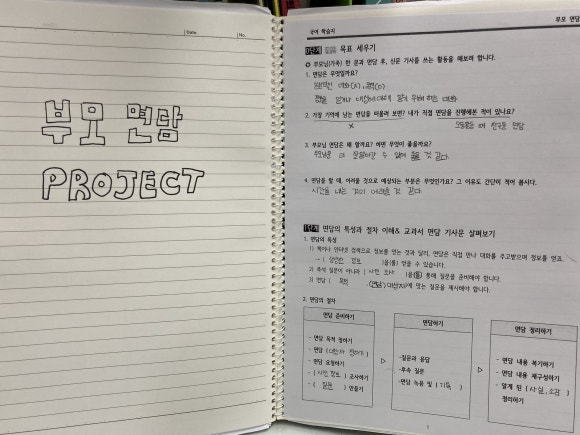 Date
No.
부모 면담
PROJECT
국어 학습지
부모 면담
목표 세우기
부모님(가족) 한 분과 면담 후, 신문 기사를 쓰는 활동을 해보려 합니다.
1. 면담은 무엇일까요?
2. 가장 기억에 남는 면담을 떠올려 보면? 내가 직접 면담을 진행해본 적이 있나요?
X
3. 부모님 면담은 왜 할까요? 하면 무엇이 좋을까요?
4. 면담을 할 때, 어려울 것으로 예상되는 부분은 무엇인가요? 그 이유도 간단히 적어 봅시다.
시간을 내는 것이 어려울 것 같다.
1단계 면담의 특성과 절차 이해& 교과서 면담 기사문 살펴보기
1. 면담의 특성
1) 책이나 인터넷 검색으로 정보를 얻는 것과 달리, 면담은 직접 만나 대화를 주고받으며 정보를 얻죠.
→ ( 생생한 정보 )을(를) 얻을 수 있습니다.
2) 즉석 질문이 아니라 ( 사전 조사 )을(를) 통해 질문을 준비해야 합니다.
3) 면담 ( 목적 ), (면담) 대상(자)에 맞는 질문을 제시해야 합니다.
2. 면담의 절차
면담 준비하기
- 면담 목적 정하기
- 면담 (대상자 정하기)
- 면담 요청하기
- ( 사전 정보 ) 조사하기
- ( 질문 ) 만들기
면담하기
-질문과 응답
-후속 질문
-면담 녹음 및 (기록)
면담 정리하기
- 면담 내용 복기하기
- 면담 내용 재구성하기
- 알게 된 (사실, 소감)
정리하기
1